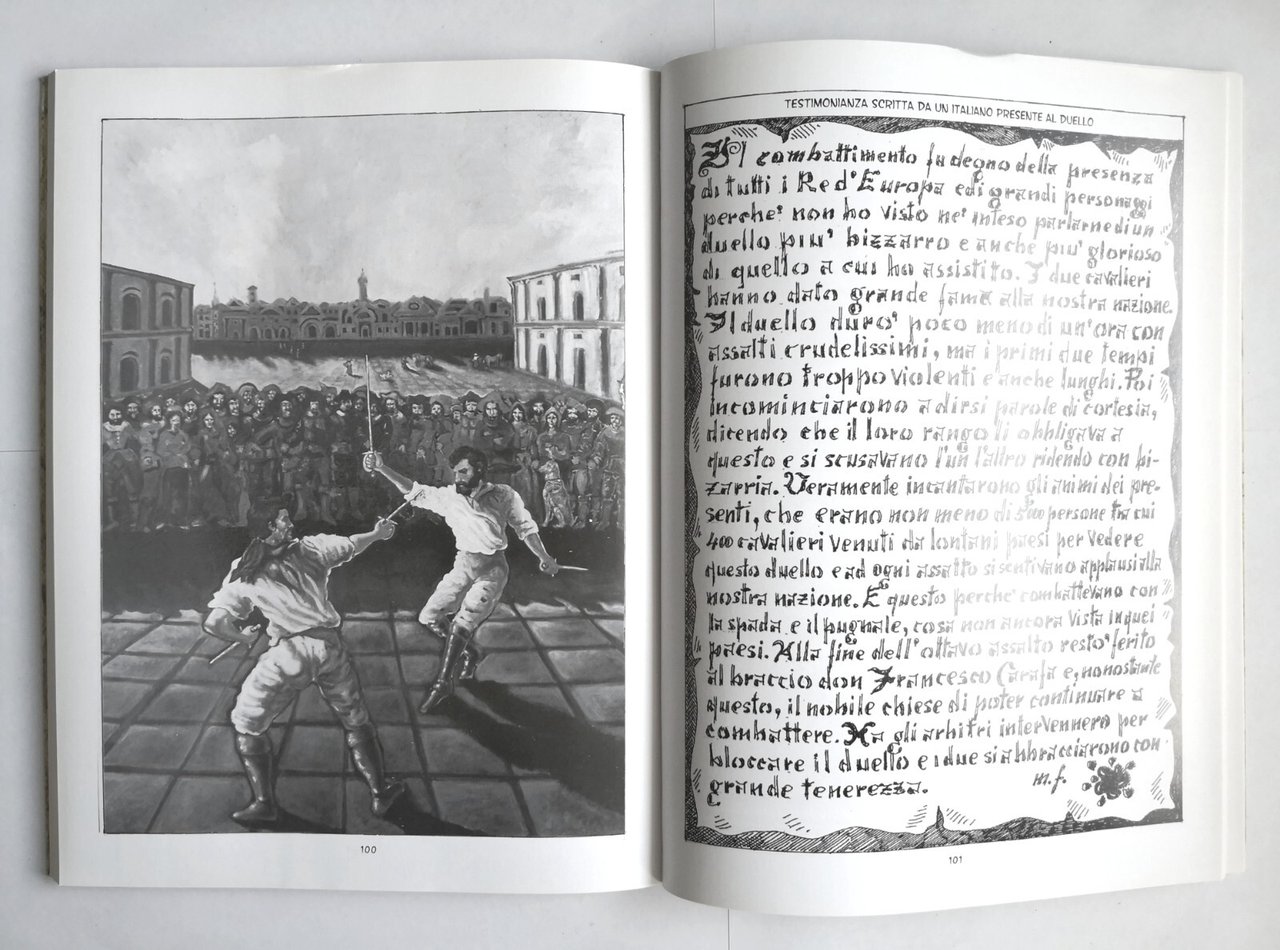 100
TESTIMONIANZA SCRITTA DA UN ITALIANO PRESENTE AL DUELLO
Il combattimento fu degno della presenza
di tutti i Re d'Europa e di grandi personaggi
perche' non ho visto ne' inteso parlarne di un
duello piu' bizzarro e anche piu' glorioso
di quello a cui ho assistito. I due cavalieri
hanno dato grande fama alla nostra nazione.
Il duello duro' poco meno di un'ora con
assalti crudelissimi, ma i primi due tempi
furono troppo violenti e anche lunghi. Poi
incominciarono a dirsi parole di cortesia,
dicendo che il loro rango li obbligava a
questo e si scusavano l'un l'altro ridendo con bi-
zarria. Veramente incantarono gli animi dei pre-
senti, che erano non meno di 5000 persone tra cui
400 cavalieri venuti da lontani paesi per vedere
questo duello e ad ogni assalto si sentivano applausi alla
nostra nazione. E questo perche' combattevano con
la spada e il pugnale, cosa non ancora vista in quei
paesi. Alla fine dell'ottavo assalto resto' ferito
al braccio don Francesco Carafa e, nonostante
questo, il nobile chiese di poter continuare a
combattere. Ma gli arbitri intervennero per
bloccare il duello e i due si abbracciarono con
grande tenerezza.
m.f.
101